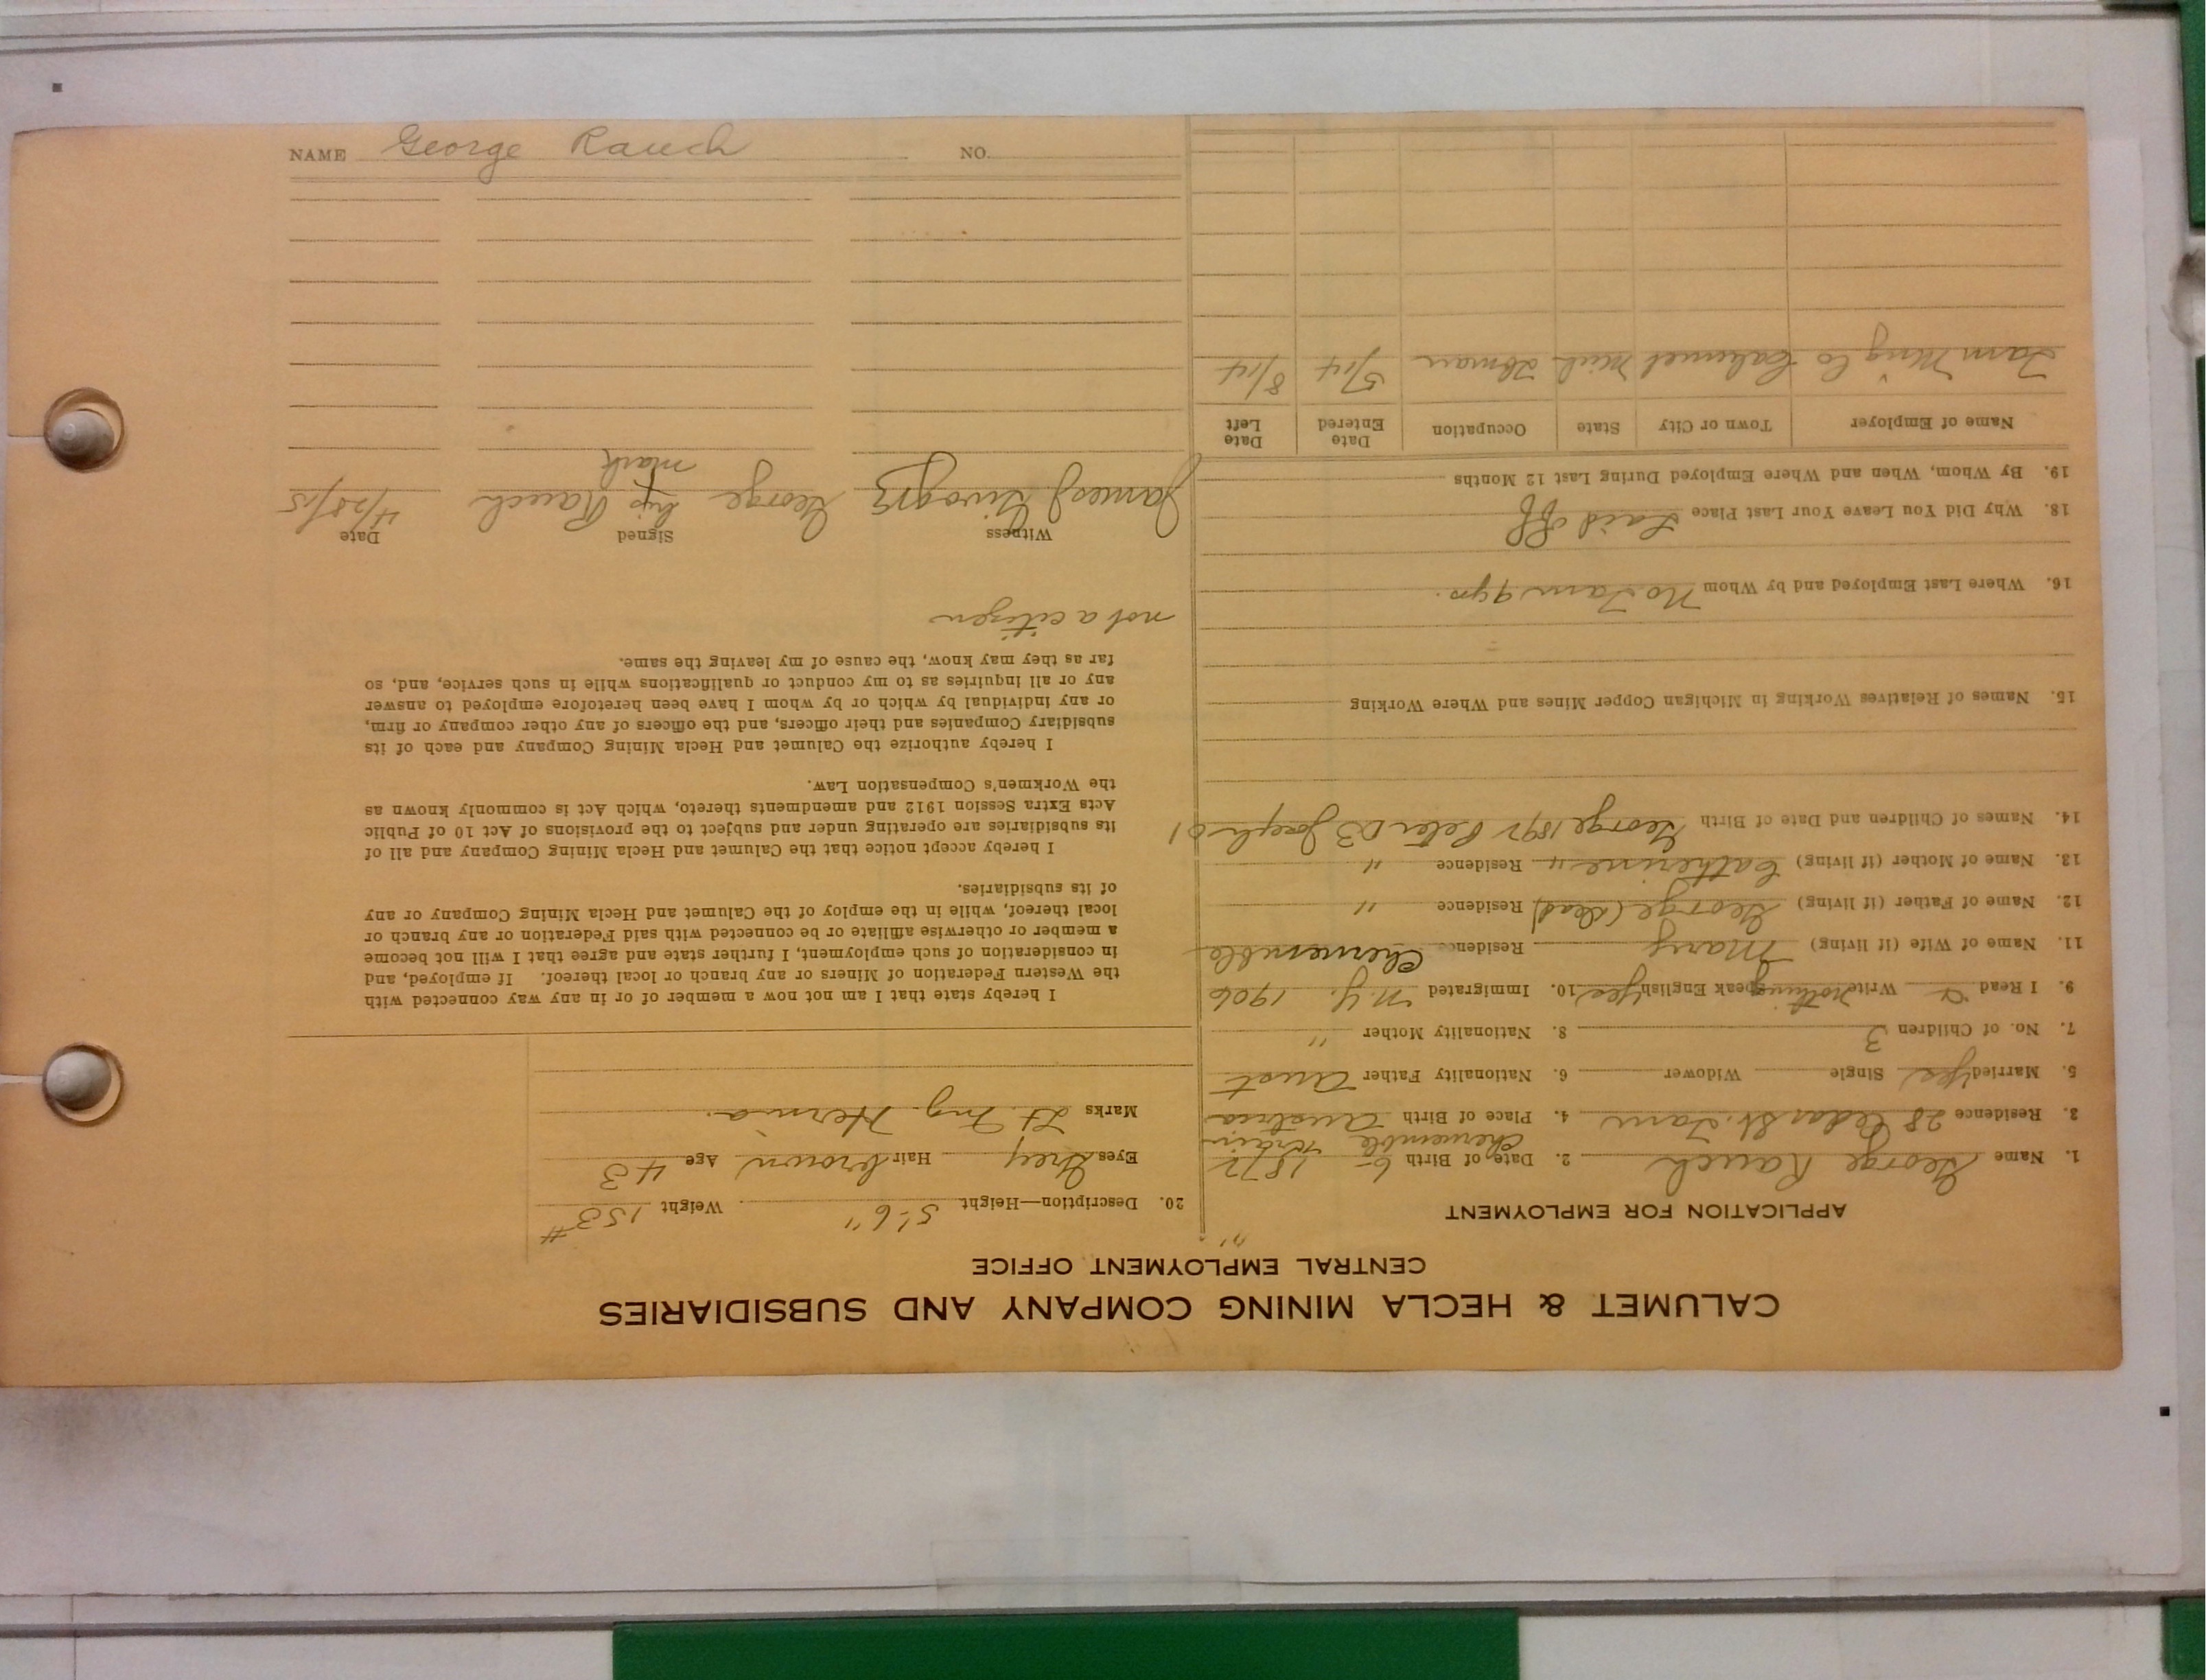 CALUMET & HECLA MINING COMPANY AND SUBSIDIARIES
CENTRAL EMPLOYMENT OFFICE
APPLICATION FOR EMPLOYMENT
1. Name George Rauch 2. Date of Birth 6- 1872
Chernemble Krain
3. Residence 28 Cedar St. Tam 4. Place of Birth Austria
5. Married yes Single Widower 6. Nationality Father Aust
7. No. of Children 3 8. Nationality Mother "
9. I Read Write nothing Speak English yes 10. Immigrated N.Y. 1906
11. Name of Wife (if living) Mary Residence Chernemble
12. Name of Father (if living) George (dead) Residence "
13. Name of Mother (if living) Catherine " Residence "
14. Names of Children and Date of Birth George 1897 Peter 03 Joseph 01
15. Names of Relatives Working in Michigan Copper Mines and Where Working
16. Where Last Employed and by Whom No Tam 9 yrs.
18. Why Did You Leave Your Last Place Laid off
19. By Whom, When and Where Employed During Last 12 Months
Name of Employer Town or City State Occupation Date Entered Date Left
Tam M'ng Co Calumet Mich 5/14 8/14
20. Description—Height 5'-6" Weight 153#
Eyes Grey Hair brown Age 43
Marks Lt. Ing. Hernia.
I hereby state that I am not now a member of or in any way connected with
the Western Federation of Miners or any branch or local thereof. If employed, and
in consideration of such employment, I further state and agree that I will not become
a member or otherwise affiliate or be connected with said Federation or any branch or
local thereof, while in the employ of the Calumet and Hecla Mining Company or any
of its subsidiaries.
I hereby accept notice that the Calumet and Hecla Mining Company and all of
its subsidiaries are operating under and subject to the provisions of Act 10 of Public
Acts Extra Session 1912 and amendments thereto, which Act is commonly known as
the Workmen's Compensation Law.
I hereby authorize the Calumet and Hecla Mining Company and each of its
subsidiary Companies and their officers, and the officers of any other company or firm,
or any individual by which or by whom I have been heretofore employed to answer
any or all inquiries as to my conduct or qualifications while in such service, and, so
far as they may know, the cause of my leaving the same.
not a citizen
Witness Signed Date
James J George his Rauch 4/28/15
mark
NAME George Rauch NO.